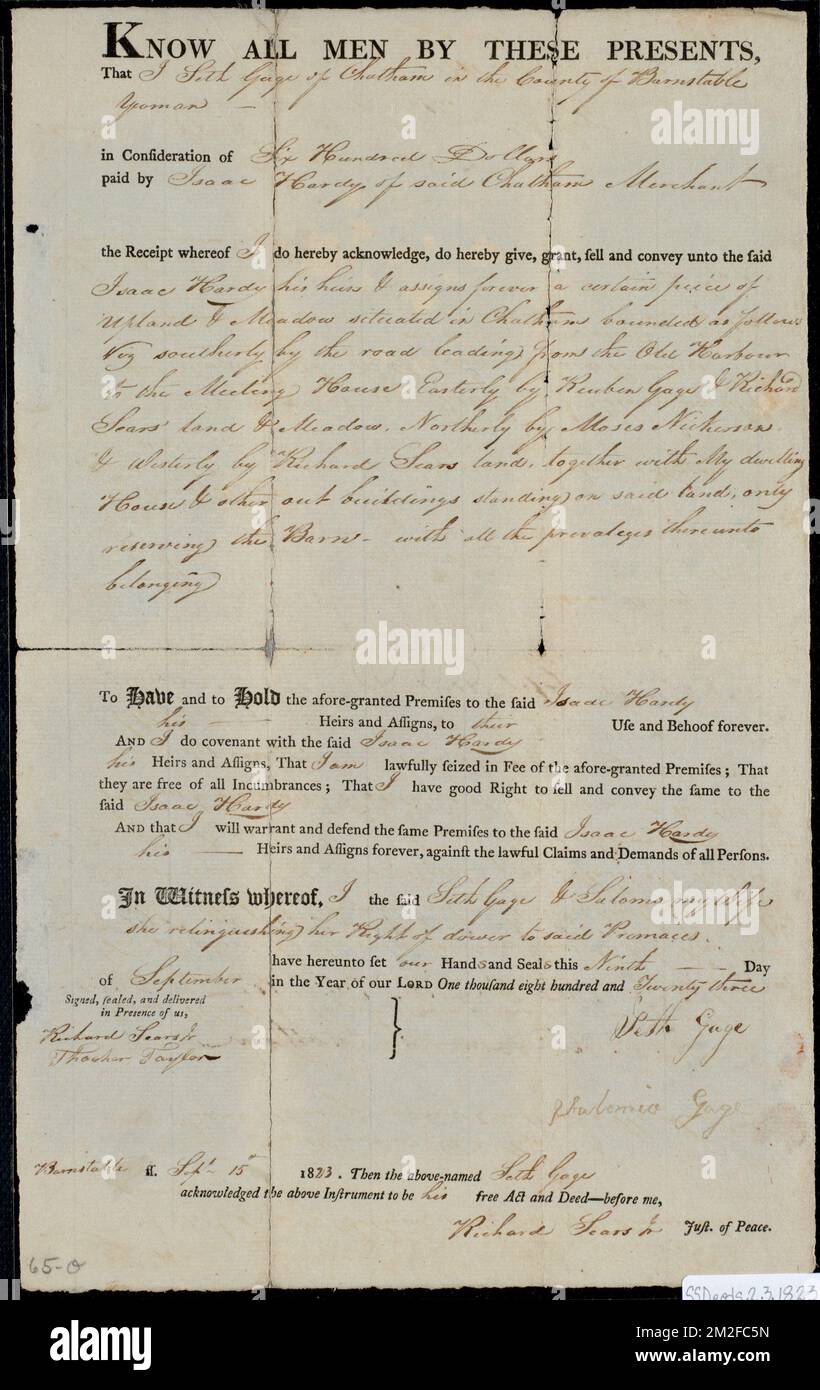 KNOW ALL MEN BY THESE PRESENTS,
That I Seth Gage of Chatham in the County of Barnstable
Yeoman —
in Conſideration of Six Hundred Dollars
paid by Isaac Hardy, of said Chatham Merchant
the Receipt whereof I do hereby acknowledge, do hereby give, grant, ſell and convey unto the ſaid
Isaac Hardy his heirs & assigns forever a certain peice of
Upland & Meadow situated in Chatham bounded as follows
Viz southerly by the road leading from the Old Harbour
to the Meeting House Easterly by Reuben Gage & Richard
Sears' land & Meadow. Northerly by Moses Nickerson
& Westerly by Richard Sears land, together with My dwelling
House & other out buildings standing on said land, only
reserving the Barn - with all the prevaleges thereunto
belonging
To Have and to Hold the afore-granted Premiſes to the ſaid Isaac Hardy
his — Heirs and Aſſigns, to their Uſe and Behoof forever.
AND I do covenant with the ſaid Isaac Hardy
his Heirs and Aſſigns, That I am lawfully ſeized in Fee of the afore-granted Premiſes; That
they are free of all Incumbrances; That I have good Right to ſell and convey the ſame to the
ſaid Isaac Hardy
AND that I will warrant and defend the ſame Premiſes to the ſaid Isaac Hardy
his — Heirs and Aſſigns forever, againſt the lawful Claims and Demands of all Perſons.
In Witneſs whereof, I the ſaid Seth Gage & my Wife
she relinquishing her Right of dower to said Premaces.
have hereunto ſet our Hands and Seals this Ninth — Day
of September in the Year of our LORD One thouſand eight hundred and Twenty three
Signed, ſealed, and delivered
in Preſence of us,
Richard Sears Jr
Thacher Taylor
Seth Gage
Gage
Barnstable ſſ. Sept 15 1823. Then the above-named Seth Gage
acknowledged the above Inſtrument to be his free Act and Deed—before me,
Richard Sears Jr Juſt. of Peace.
65-0
SSDeeds.2.3.1823
alamy
Image ID: 2M2FC5N
www.alamy.com